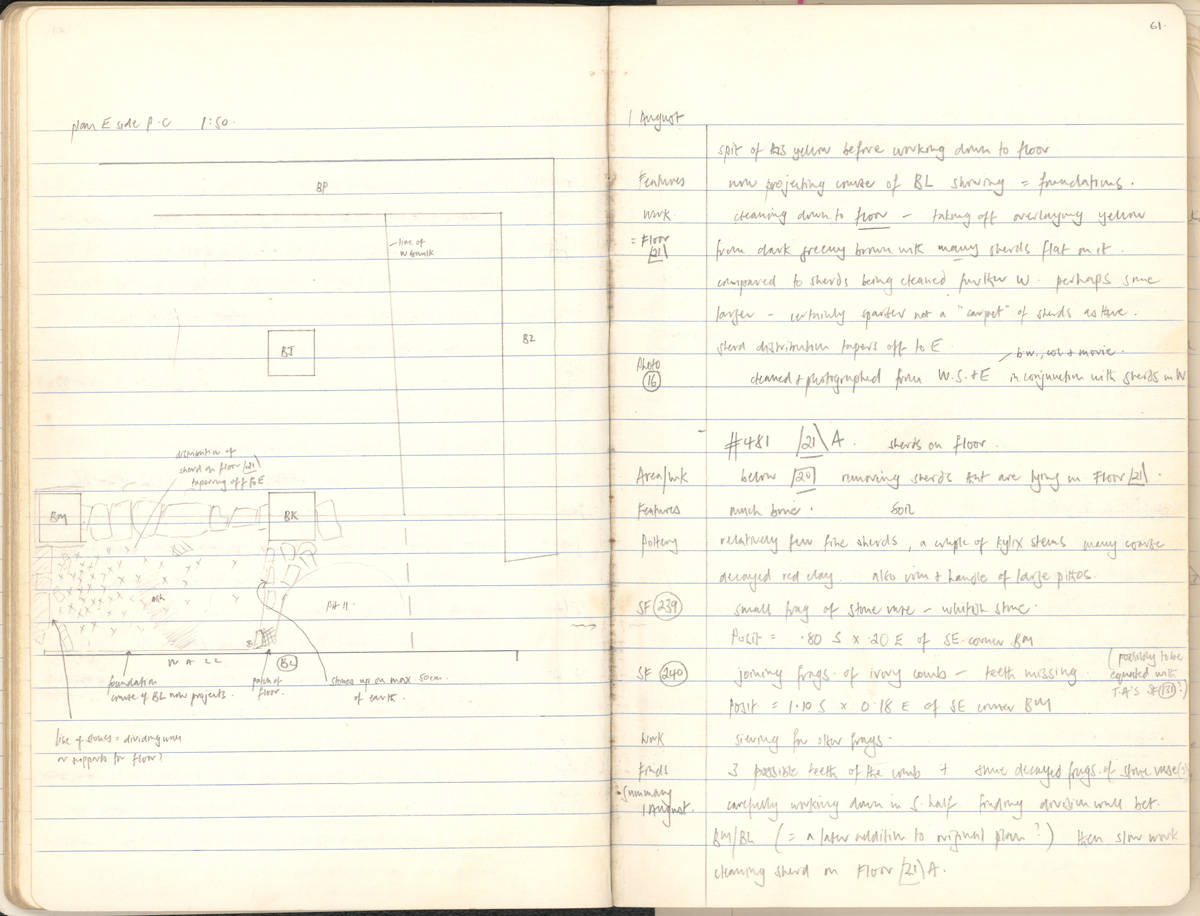 plan E side P-C 1:50.
BP
line of
W baulk
BZ
BJ
distribution of
sherds on floor /21\
tapering off to E
BM
BK
ash
Pit 11.
WALL
BL
foundation
course of BL now projects.
patch of
floor.
stones up on max 50cm
of earth.
line of stones = dividing wall
or supports for floor?
61.
1 August
spit of this yellow before working down to floor.
Features now projecting course of BL showing = foundations.
Work cleaning down to floor – taking off overlaying yellow
= Floor /21\ from dark greeny brown with many sherds flat on it
compared to sherds being cleaned further W. perhaps some
larger – certainly sparser not a "carpet" of sherds as there.
sherd distribution tapers off to E.
b.w., col + movie.
Photo 16 cleaned + photographed from W.S.+E in conjunction with sherds in W
#481 /21\ A. sherds on floor.
Area/wk below /20\ removing sherds that are lying on Floor /21\.
Features much bone. soil
Pottery relatively few fine sherds, a couple of kylix stems many coarse
decayed red clay. also rim + handle of large pithos.
SF 239 small frag of stone vase – whitish stone.
Posit = .80 S x .20 E of SE corner BM
SF 240 joining frags. of ivory comb – teeth missing. (possibly to be
equated with
T.A's SF 131?)
Posit = 1.10 S x 0.18 E of SE corner BM
Work sieving for other frags.
Finds 3 possible teeth of the comb + some decayed frags. of stone vase(?)
Summary
1 August. carefully working down in S. half finding division wall bet.
BM/BL (= a later addition to original plan?) then slow work
cleaning sherd on Floor /21\ A.